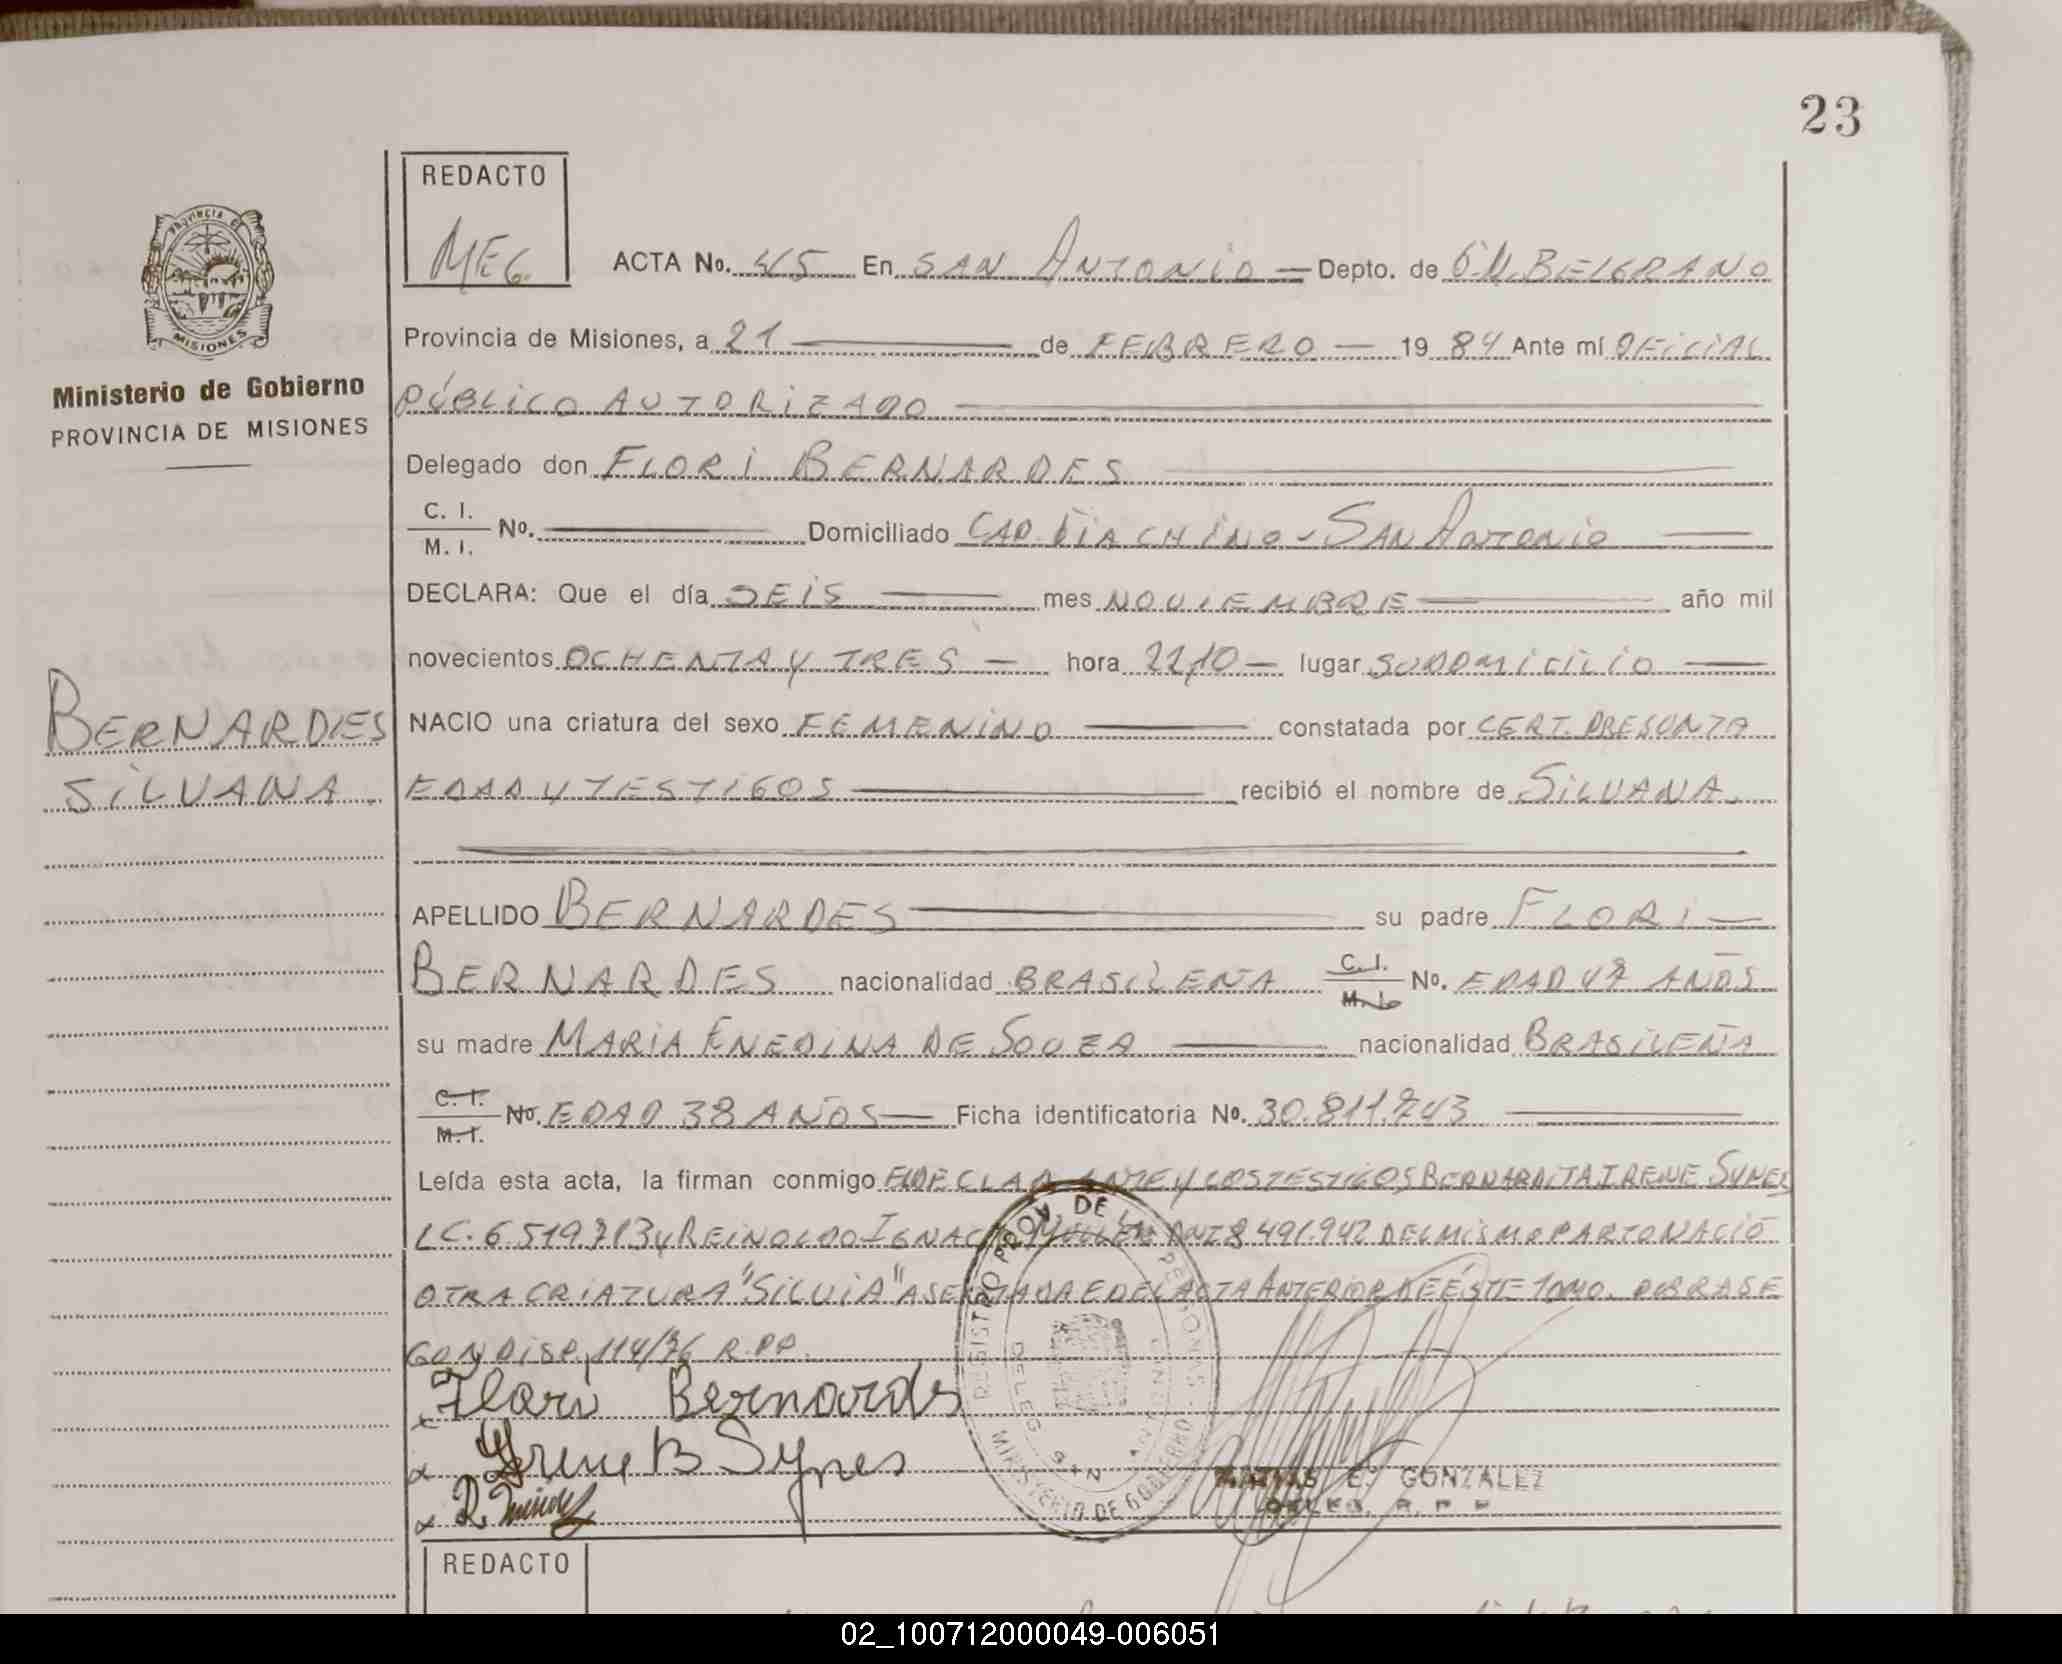 23
REDACTO
MEG.
ACTA No. 45 En SAN ANTONIO = Depto. de G.M. BELGRANO
Provincia de Misiones, a 21 de FEBRERO 19 84 Ante mí OFICIAL
PÚBLICO AUTORIZADO
PROVINCIA DE
MISIONES
Ministerio de Gobierno
PROVINCIA DE MISIONES
Delegado don FLORI BERNARDES
C. I.
M. I. No. Domiciliado SAN ANTONIO
DECLARA: Que el día SEIS mes NOVIEMBRE año mil
novecientos OCHENTA Y TRES hora 22,10 lugar SU DOMICILIO
BERNARDES
SILVANA.
NACIO una criatura del sexo FEMENINO constatada por CERT. PRESUNTA
EDAD Y TESTIGOS recibió el nombre de SILVANA.
APELLIDO BERNARDES su padre FLORI
BERNARDES nacionalidad BRASILEÑA C. I. M. I. No. EDAD 47 AÑOS
su madre MARIA ENEDINA DE SOUZA nacionalidad BRASILEÑA
C. I. M. I. No. EDAD 38 AÑOS Ficha identificatoria No. 30.811.743
Leída esta acta, la firman conmigo EL DECLARANTE Y LOS TESTIGOS BERNARDITA IRENE SYNES
LC. 6.519.713 Y REINOLDO IGNACIO DNI 8.491.942 DEL MISMO PARTO NACIÓ
OTRA CRIATURA "SILVIA" ASENTADA EN EL ACTA ANTERIOR DE ÉSTE TOMO. OBRASE
CON DISP. 114/76 R.PP.
x Flori Bernardes
x Yrene B Synes
x R.
REGISTRO PROV. DE LAS PERSONAS
MINISTERIO DE GOBIERNO
DELEG. SAN ANTONIO
E. GONZALEZ
DELEG. R. P. P.
REDACTO
02_100712000049-006051